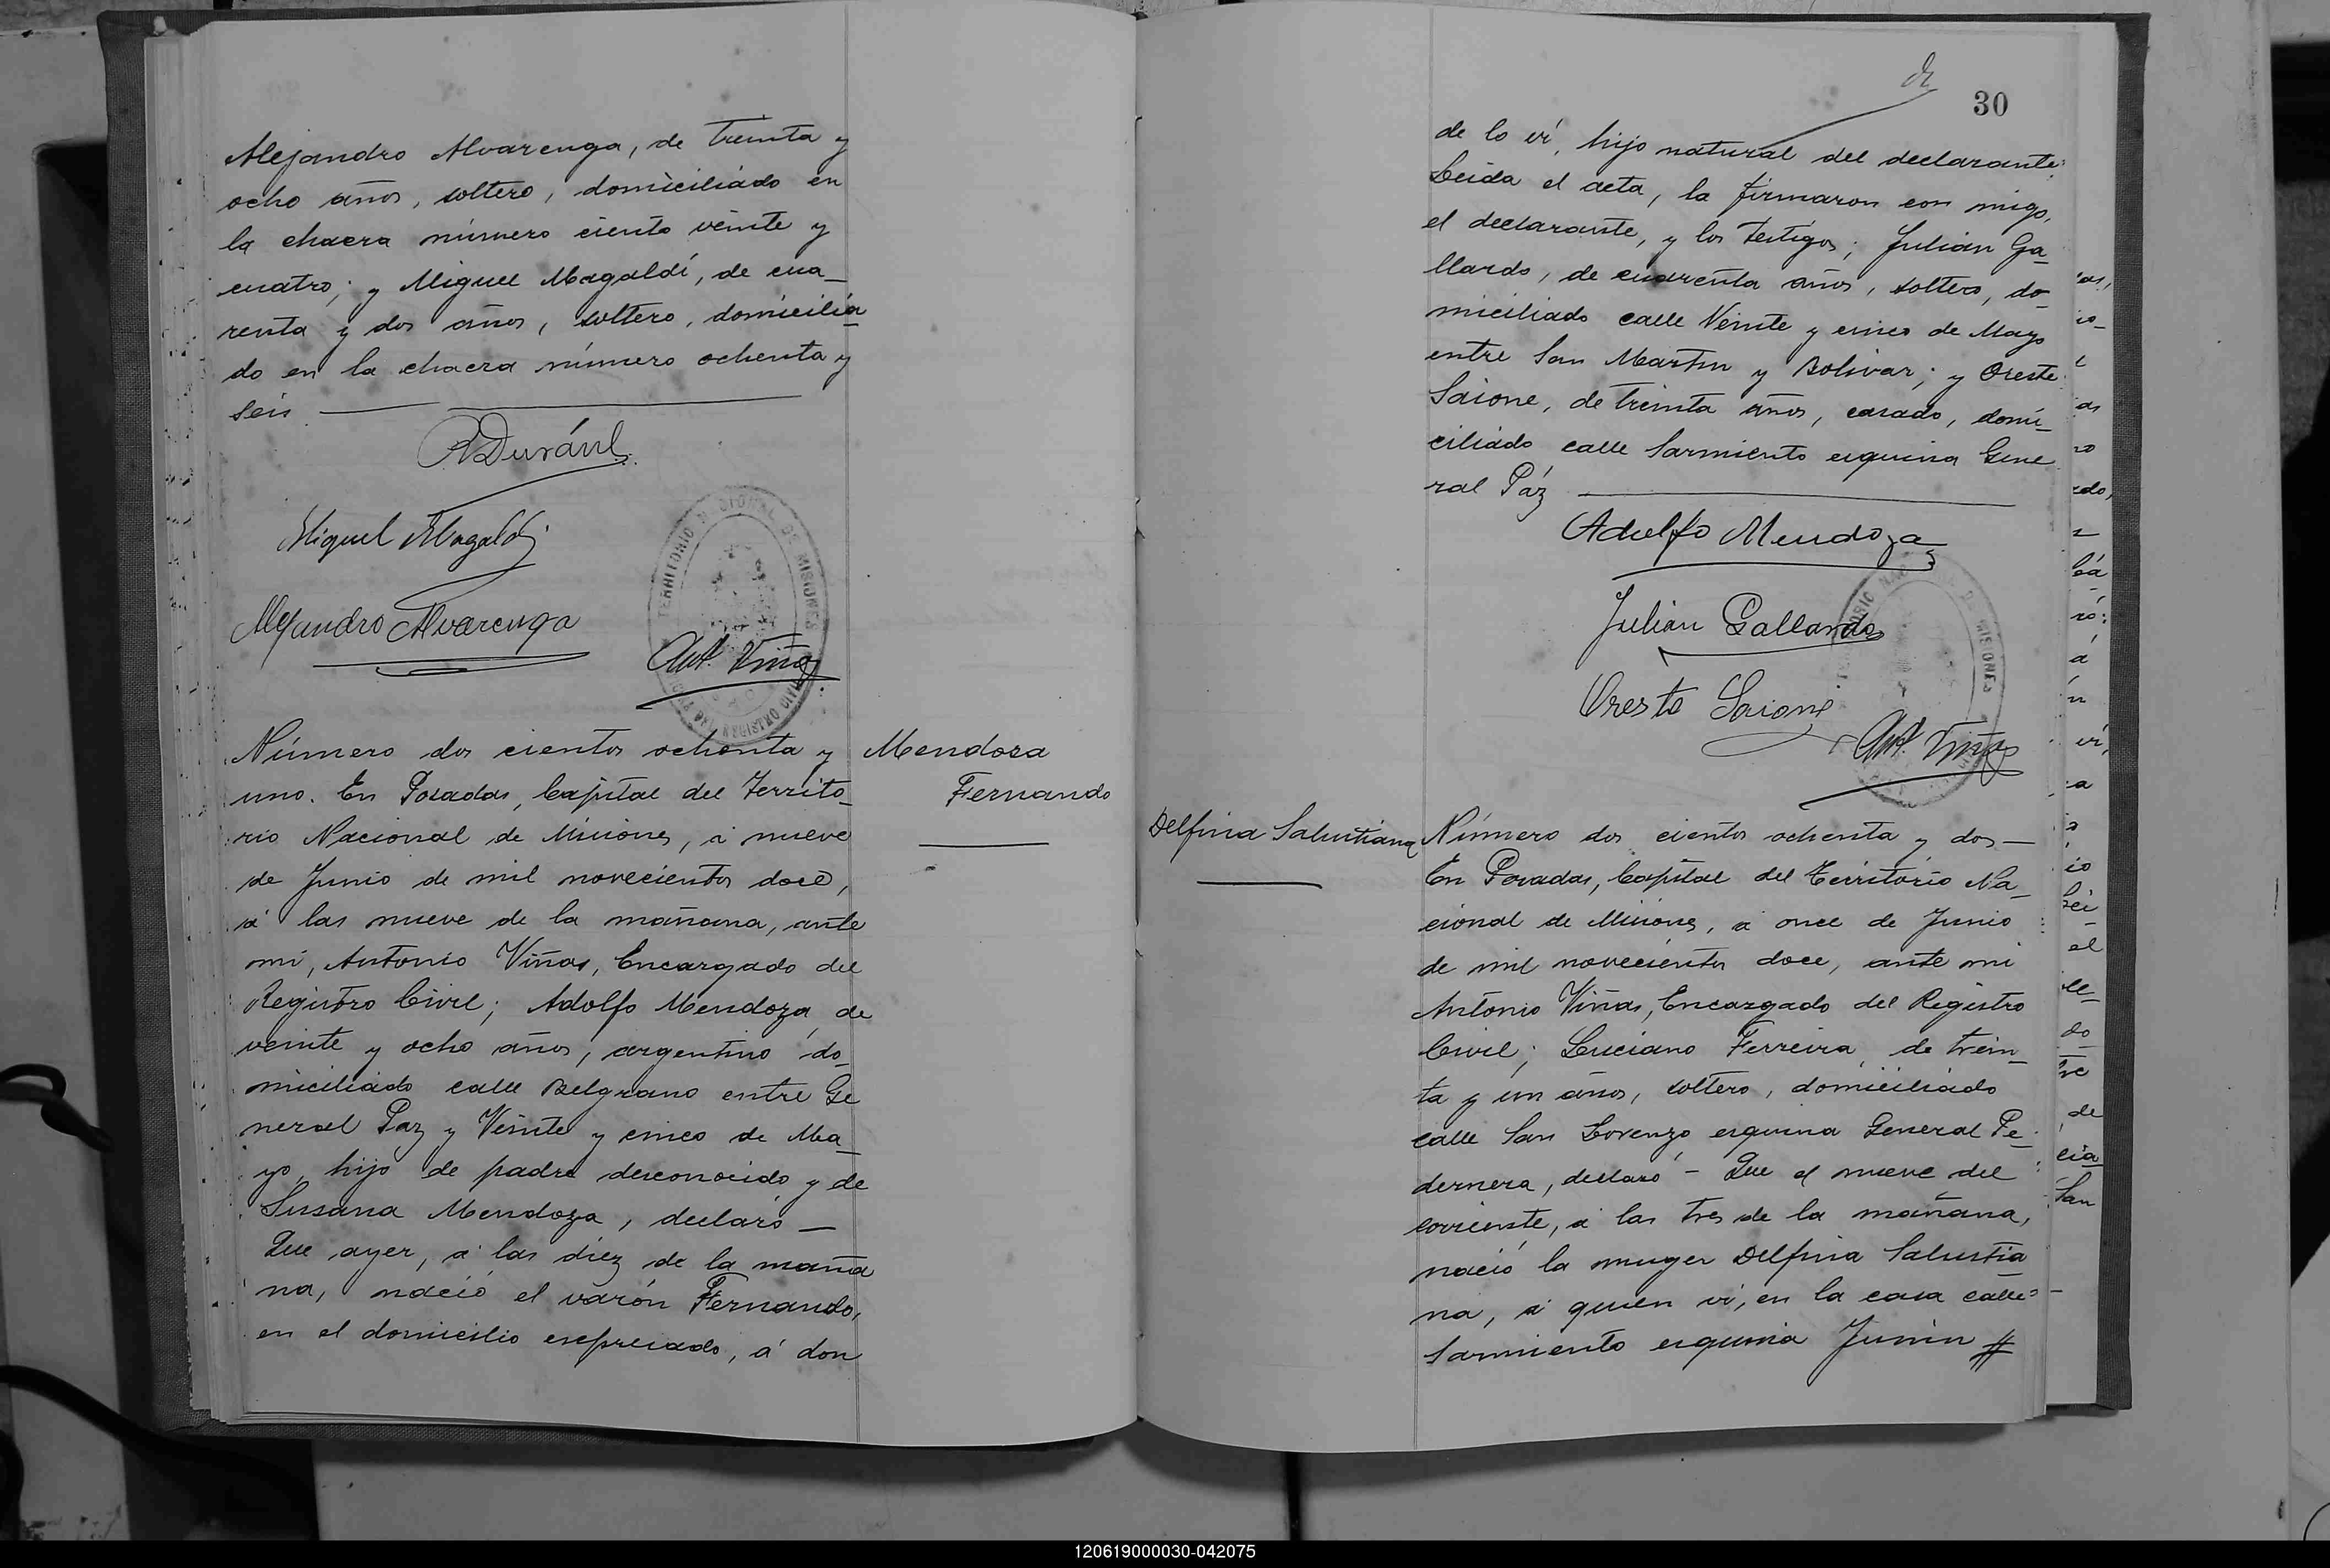 Alejandro Alvarenga, de treinta y
ocho años, soltero, domiciliado en
la chacra número ciento veinte y
cuatro; y Miguel Magaldi, de cua_
renta y dos años, soltero, domicilia
do en la chacra número ochenta y
seis
ADuránl
Miguel Magaldi
Alejandro Alvarenga
TERRITORIO NACIONAL DE MISIONES
Ant. Viñas
Número dos cientos ochenta y
uno. En Posadas, Capital del Territo_
rio Nacional de Misiones, á nueve
de Junio de mil novecientos doce,
á las nueve de la mañana, ante
mi, Antonio Viñas, Encargado del
Registro Civil; Adolfo Mendoza, de
veinte y ocho años, argentino do_
miciliado calle Belgrano entre Ge
neral Paz y Veinte y cinco de Ma_
yo, hijo de padre desconocido y de
Susana Mendoza, declaró —
Que ayer, á las diez de la maña
na, nació el varón Fernando,
en el domicilio expresado, á don
Mendosa
Fernando
30
de lo ví, hijo natural del declarante.
Leida el acta, la firmaron con migo,
el declarante, y los testigos; Julián Ga_
llardo, de cuarenta años, soltero, do_
miciliado calle Veinte y cinco de Mayo
entre San Martin y Bolivar; y Oreste
Saione, de treinta años, casado, domi_
ciliado calle Sarmiento esquina Gene
ral Páz
Adolfo Mendoza
Julian Gallardo
Oreste Saione
Ant. Viñas
Delfina Salustiana
Número dos cientos ochenta y dos —
En Posadas, Capital del Territorio Na_
cional de Misiones, á once de Junio
de mil novecientos doce, ante mi
Antonio Viñas, Encargado del Registro
Civil; Luciano Ferreira, de trein_
ta y un años, soltero, domiciliado
calle San Lorenzo esquina General Pe_
dernera, declaró – Que el nueve del
corriente, á las tres de la mañana,
nació la muger Delfina Salustia
na, á quien ví, en la casa calle
Sarmiento esquina Junin #
120619000030-042075